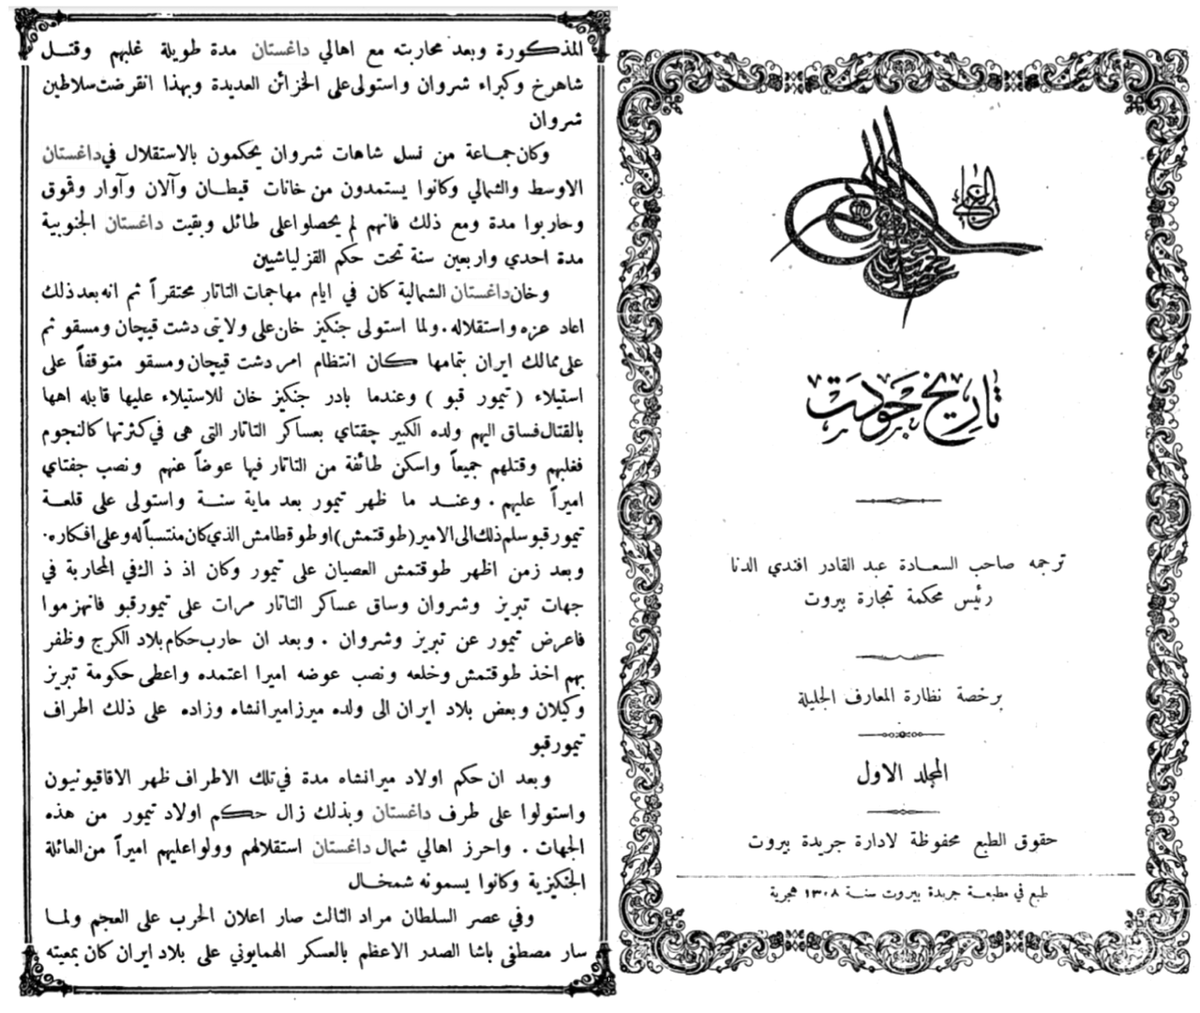 المذكورة وبعد محاربته مع اهالي داغستان مدة طويلة غلبهم وقتل
شاهرخ وكبراء شروان واستولى على الخزائن العديدة وبهذا انقرضت سلاطين
شروان
وكان جماعة من نسل شاهات شروان يحكمون بالاستقلال في داغستان
الاوسط والشمالي وكانوا يستمدون من خانات قيطان وآلان وآوار وقموق
وحاربوا مدة ومع ذلك فانهم لم يحصلوا على طائل وبقيت داغستان الجنوبية
مدة احدي واربعين سنة تحت حكم القزلباشيين
وخان داغستان الشمالية كان في ايام مهاجمات التاتار محتقراً ثم انه بعد ذلك
اعاد عزه واستقلاله . ولما استولى جنكيز خان على ولايتى دشت قيچان ومسقو ثم
على ممالك ايران بتمامها كان انتظام امر دشت قيچان ومسقو متوقفاً على
استيلاء ( تيمور قبو ) وعندما بادر جنكيز خان للاستيلاء عليها قابله اهها
بالقتال فساق اليهم ولده الكبير چقتاي بعساكر التاتار التى هى في كثرتها كالنجوم
فغلبهم وقتلهم جميعاً واسكن طائفة من التاتار فيها عوضاً عنهم ونصب جفتاي
اميراً عليهم . وعند ما ظهر تيمور بعد ماية سنة واستولى على قلعة
تيمورقبو سلم ذلك الى الامير (طوقتمش) او طوقطامش الذي كان منتسباً له وعلى افكاره.
وبعد زمن اظهر طوقتمش العصيان على تيمور وكان اذ ذاك في المحاربة في
جهات تبريز وشروان وساق عساكر التاتار مرات على تيمورقبو فانهزموا
فاعرض تيمور عن تبريز وشروان . وبعد ان حارب حكام بلاد الكرج وظفر
بهم اخذ طوقتمش وخلعه ونصب عوضه اميرا اعتمده واعطى حكومة تبريز
وكيلان وبعض بلاد ايران الى ولده ميرزاميرانشاه وزاده على ذلك اطراف
تيمورقبو
وبعد ان حكم اولاد ميرانشاه مدة في تلك الاطراف ظهر الاقاقيونيون
واستولوا على طرف داغستان وبذلك زال حكم اولاد تيمور من هذه
الجهات . واحرز اهالي شمال داغستان استقلالهم وولوا عليهم اميراً من العائلة
الجنكيزية وكانوا يسمونه شمخال
وفي عصر السلطان مراد الثالث صار اعلان الحرب على العجم ولما
سار مصطفى باشا الصدر الاعظم بالعسكر الهمايوني على بلاد ايران كان بمعيته
الغازي
تاريخ جودت
ترجمه صاحب السعادة عبد القادر افندي الدنا
رئيس محكمة تجارة بيروت
برخصة نظارة المعارف الجليلة
المجلد الاول
حقوق الطبع محفوظة لادارة جريدة بيروت
طبع في مطبعة جريدة بيروت سنة ١٣٠٨ هجرية